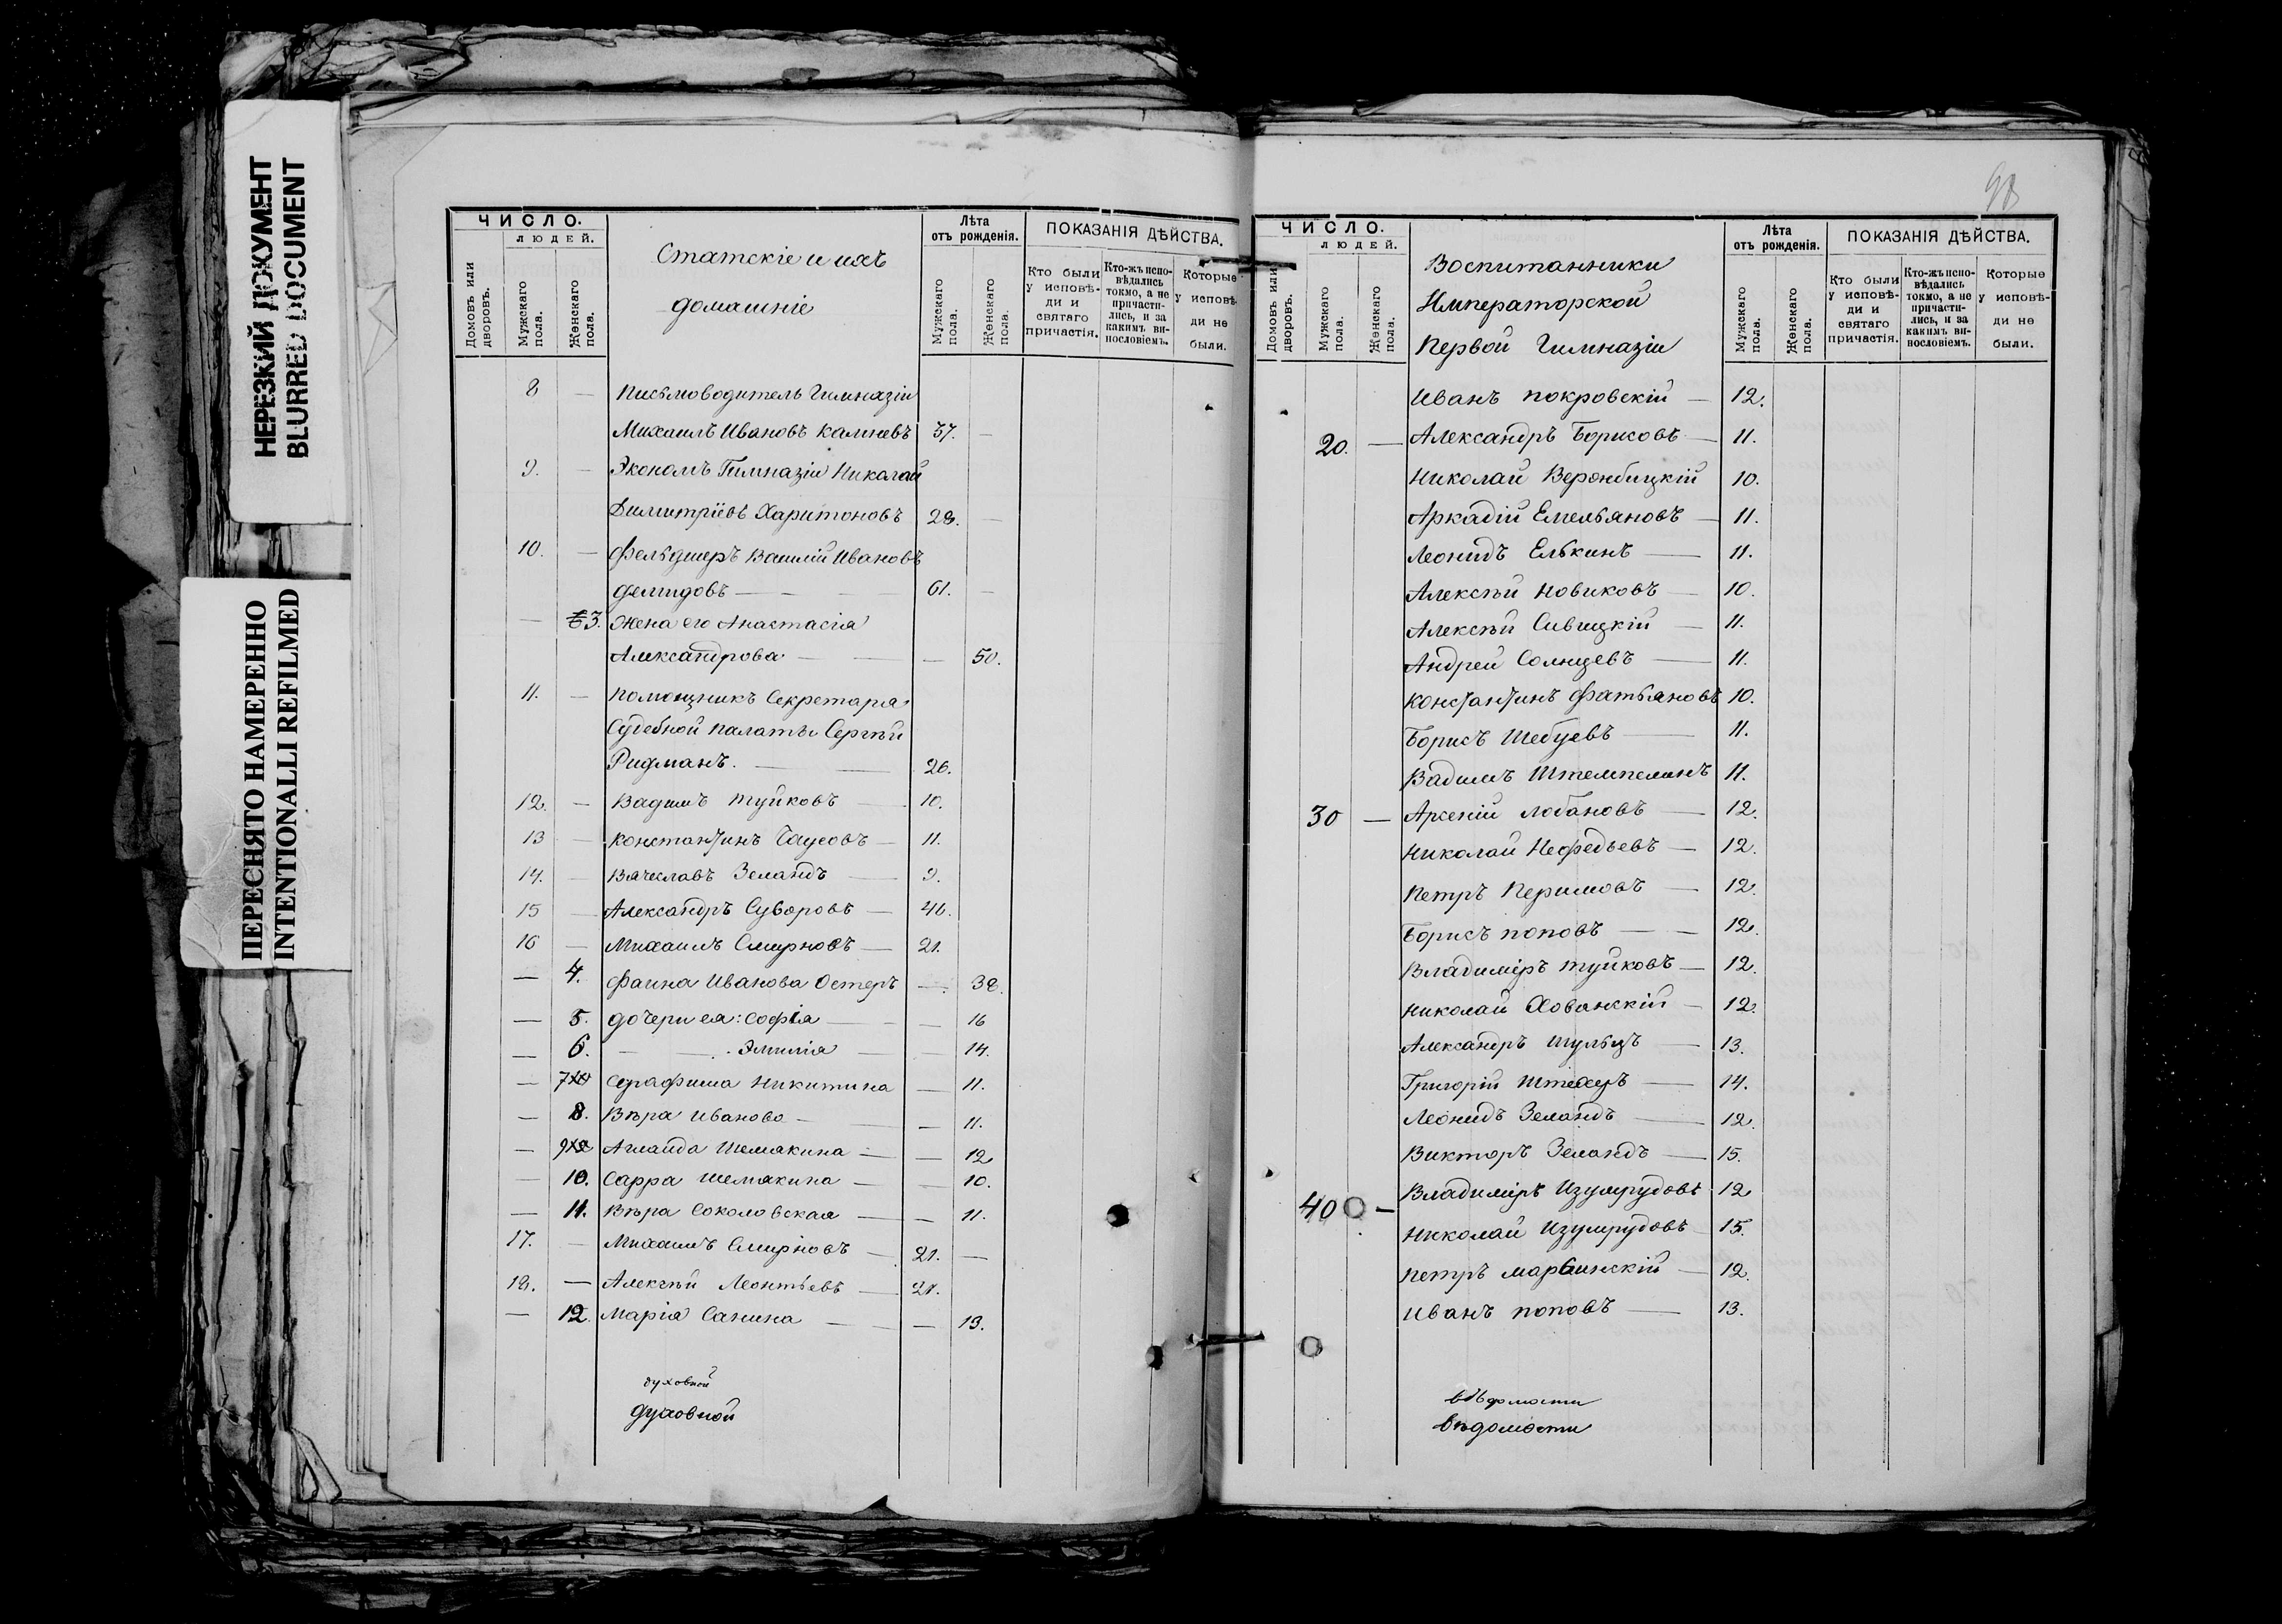 НЕРЕЗКИЙ ДОКУМЕНТ
BLURRED DOCUMENT
ПЕРЕСНЯТО НАМЕРЕННО
INTENTIONALLI REFILMED
ЧИСЛО.
ЛЮДЕЙ.
Домовъ или дворовъ.
Мужскаго пола.
Женскаго пола.
Статскіе и ихъ
домашніе
Лѣта
отъ рожденія.
Мужскаго пола.
Женскаго пола.
ПОКАЗАНІЯ ДѢЙСТВА.
Кто были у исповѣ-ди и святаго причастія.
Кто-жъ испо-вѣдались токмо, а не причасти-лись, и за какимъ ви-нословіемъ.
Которые у исповѣ-ди не были.
8 — Письмоводитель Гимназіи
Михаилъ Ивановъ 37. —
9. — Экономъ Гимназіи Николай
Димитріевъ Харитоновъ 28. —
10. — Фельдшеръ Василій Ивановъ
Демидовъ — 61. —
— 3. Жена его Анастасія
Александрова — — 50.
11. — Помощникъ Секретаря
Судебной палаты Сергѣй
Ридманъ. — 26.
12. — Вадимъ Туйковъ — 10.
13 — Константинъ — 11.
14. — Вячеславъ Земандъ — 9.
15 — Александръ Суворовъ — 46.
16 — Михаилъ Смирновъ — 21.
— 4. Фаина Иванова Остеръ — 38.
— 5. дочери ея: Софія — — 16
— 6. — Эмилія — 14.
— 7 Серафима Никитина — 11.
— 8. Вѣра Иванова — — 11.
— 9 Аглаида Шемякина — — 12
— 10. Сарра Шемякина — — 10.
— 11. Вѣра Соколовская — — 11.
17. — Михаилъ Смирновъ — 21. —
18. — Алексѣй Леонтьевъ — 21.
— 12. Марія Санина — — 13.
духовной
духовной
98
ЧИСЛО.
ЛЮДЕЙ.
Домовъ или дворовъ.
Мужскаго пола.
Женскаго пола.
Воспитанники
Императорской
Первой Гимназіи
Лѣта
отъ рожденія.
Мужскаго пола.
Женскаго пола.
ПОКАЗАНІЯ ДѢЙСТВА.
Кто были у исповѣ-ди и святаго причастія.
Кто-жъ испо-вѣдались токмо, а не причасти-лись, и за какимъ ви-нословіемъ.
Которые у исповѣ-ди не были.
Иванъ Покровскій — 12.
20. — Александръ Борисовъ — 11.
Николай Вербицкій 10.
Аркадій Емельяновъ — 11.
Леонидъ Елькинъ — 11.
Алексѣй Новиковъ — 10.
Алексѣй Сивицкій — 11.
Андрей Солнцевъ — 11.
Константинъ Фатьяновъ 10.
Борисъ Шебуевъ — 11.
Вадимъ Штемпелинъ 11.
30 — Арсеній Лобановъ — 12.
Николай Нефедьевъ — 12.
Петръ Перимовъ — 12.
Борисъ Поповъ — — 12.
Владиміръ Туйковъ — 12.
Николай Хованскій — 12.
Александръ Шульцъ — 13.
Григорій Штехеръ — 14.
Леонидъ Земандъ — 12.
Викторъ Земандъ — 15.
40 — Владиміръ Изумрудовъ 12
Николай Изумрудовъ — 15.
Петръ Марбинскій — 12.
Иванъ Поповъ — 13.
вѣдомости
вѣдомости